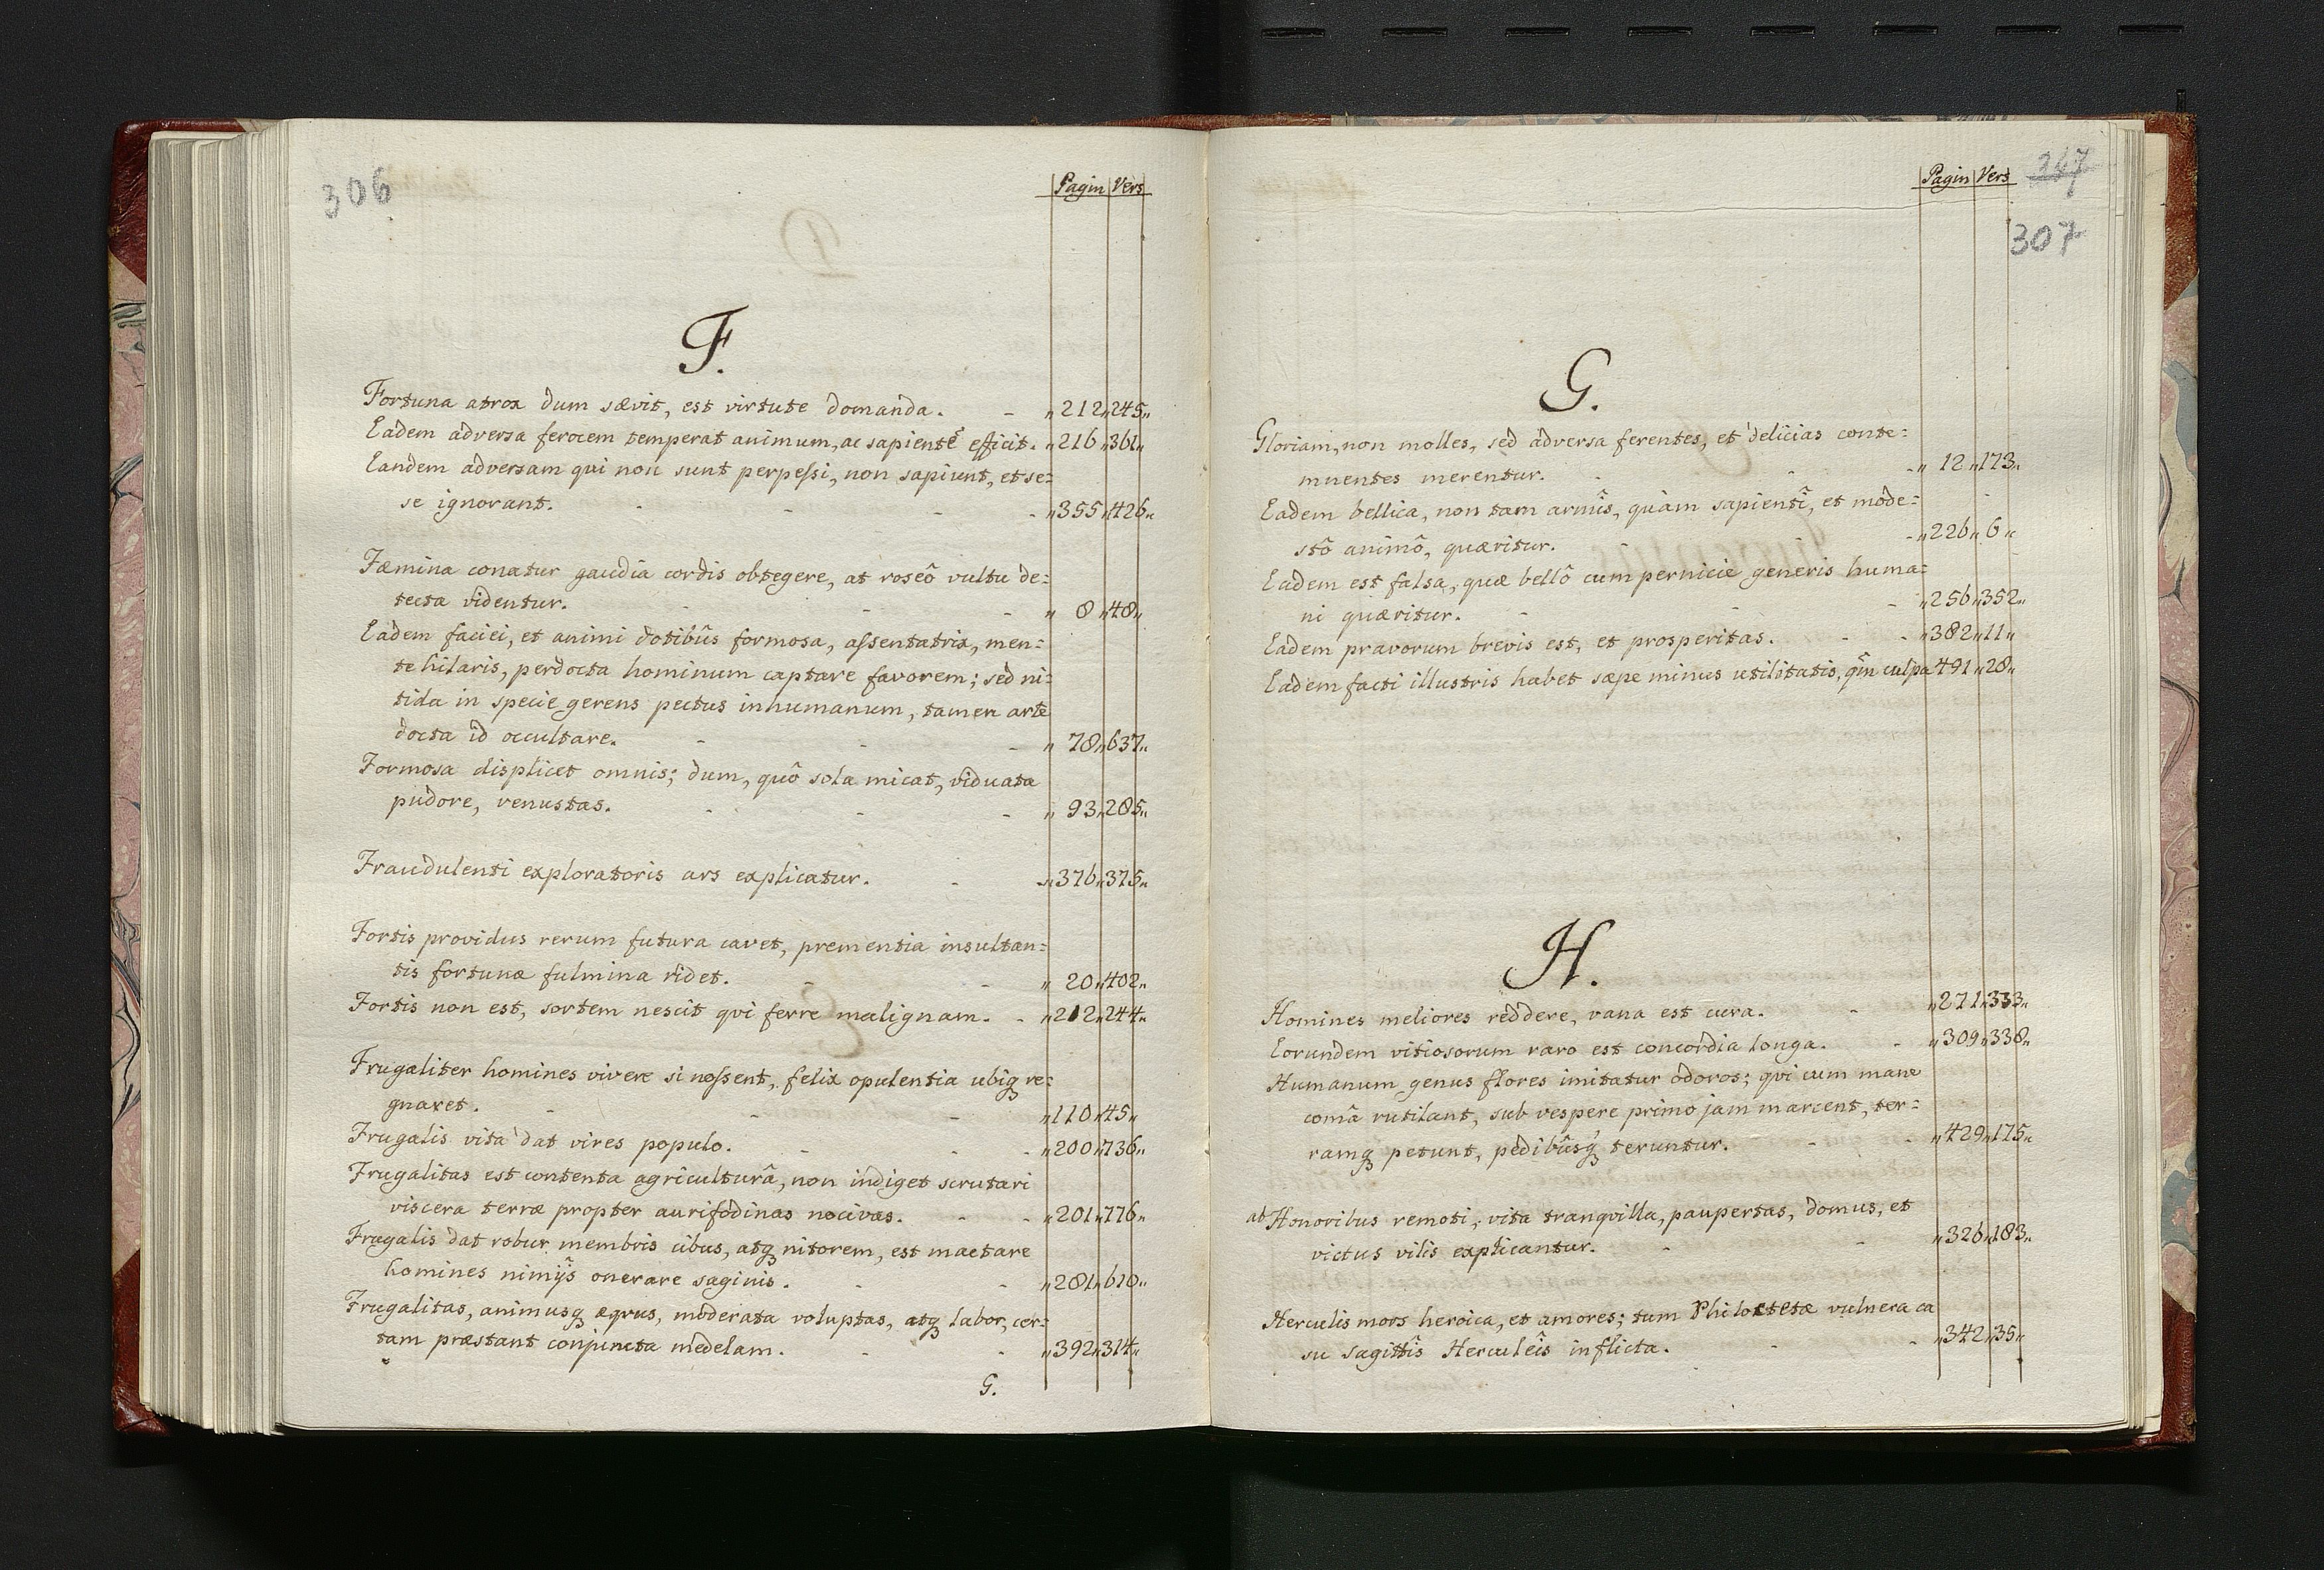 306
Pagin Vers
F.
Fortuna atrox dum sævit, est virtute domanda. - „212„245„
Eadem adversa ferocem temperat animum, ac sapientẽ efficit. „216„361„
Eandem adversam qui non sunt perpessi, non sapiunt, et se=
se ignorant. - - - - „355„426„
Fæmina conatur gaudia cordis obtegere, at roseô vultu de=
tecta videntur. - - - „ 8„48„
Eadem faciei, et animi dotibûs formosa, assentatrix, men=
te hilaris, perdocta hominum captare favorem; sed ni=
tida in specie gerens pectus inhumanum, tamen arte
docta id occultare. - - - „ 78„637„
Formosa displicet omnis; dum, quô sola micat, viduata
pudore, venustas. - - - „ 93„285„
Fraudulenti exploratoris ars explicatur. - - „376„375„
Fortis providus rerum futura cavet, prementia insultan=
tis fortunæ fulmina ridet. - - „ 20„402„
Fortis non est, sortem nescit qvi ferre malignam. - „212„244„
Frugaliter homines vivere si nossent, felix opulentia ubiq̨ re=
gnaret. - - - „110„45„
Frugalis vita dat vires populo. - - - „200„736„
Frugalitas est contenta agriculturâ, non indiget scrutari
viscera terræ propter aurifodinas nocivas. - - „201„776„
Frugalis dat robur membris cibus, atq̨ nitorem, est mactare
homines nimijs onerare saginis. - - „281„610„
Frugalitas, animusq̨ æqvus, moderata voluptas, atq̨ labor, cer=
tam præstant conjuncta medelam. - - „392„314„
G.
Pagin Vers
247
307
G.
Gloriam, non molles, sed adversa ferentes, et delicias conte=
mnentes merentur. - - - „ 12„173„
Eadem bellica, non tam armîs, quàm sapientî, et mode=
stô animô, quæritur. - - - „226„ 6„
Eadem est falsa, quæ bellô cum pernicie generis huma=
ni quæritur. - - - „256„352„
Eadem pravorum brevis est, et prosperitas. - - „382„11„
Eadem facti illustris habet sæpe minus utilitatis, qũm culpa 491„28„
H.
Homines meliores reddere, vana est cura. - „271„333„
Eorundem vitiosorum raro est concordia longa. - „309„338„
Humanum genus flores imitatur odoros; qvi cum mane
comâ rutilant, sub vespere primo jam marcent, ter=
ramq̨ petunt, pedibûsq̨ teruntur. - - „429„175„
ab Honoribus remoti, vita tranqvilla, paupertas, domus, et
victus vilis explicantur. - - „326„183„
Herculis mors heroica, et amores; tum Philoctetæ vulnera ca
su sagittîs Herculeîs inflicta. - - „342„35„